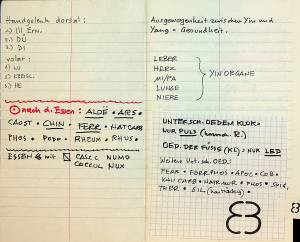 Handgelenk dorsal:
1) III, Ern.
2.) DÜ
3) DI
volar:
1) LU
2) KREISL.
3) HE
nach d. Essen: ALOE • ARS •
CAUST • CHIN • FERR • NATCARB
PHOS • PODO • RHEUM • RHUS •
ESSEN mit CALCC NUMO
COCCUL NUX
Ausgewogenheit zwischen Yin und
Yang = Gesundheit.
LEBER
HERZ
MI/PA
LUNGE
NIERE
YIN ORGANE
UNTERSCH. OEDEM KLOK.
NUR PULS
OED. DER FÜSSE (KL): NUR LED
Weitere Unt. sch. OED:
FERR • FERR PHOS • APOC • COB •
KALI CARB • NATR MUR • PHOS •